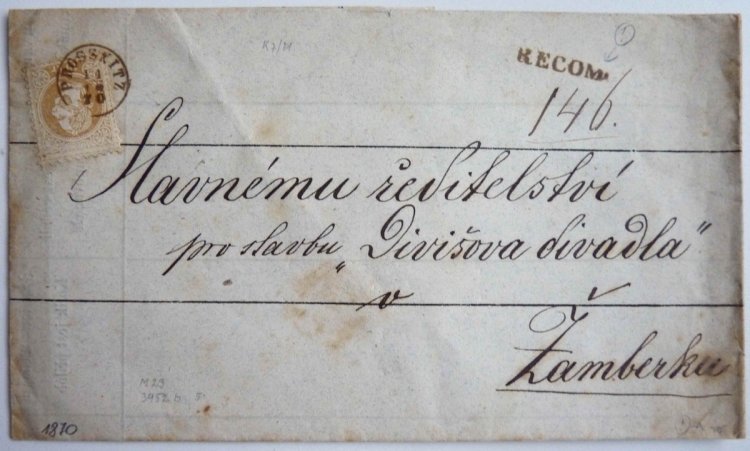 PROSSNITZ
11
12
70
R7/21
RECOM.
146.
Slavnému ředitelství
pro stavbu „Divišova divadla"
v
Žamberku
M 29
3452 b
1870